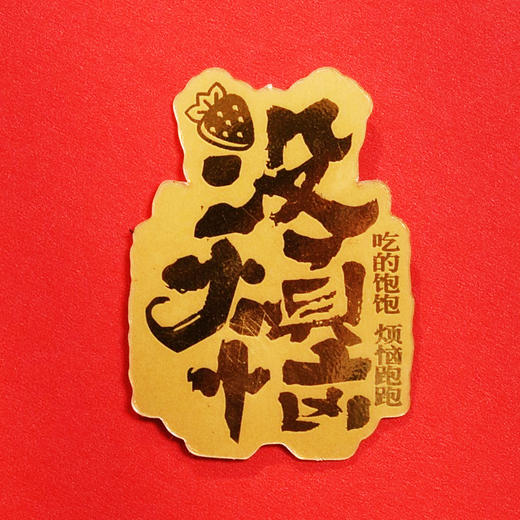 没烦恼
吃的饱饱 烦恼跑跑